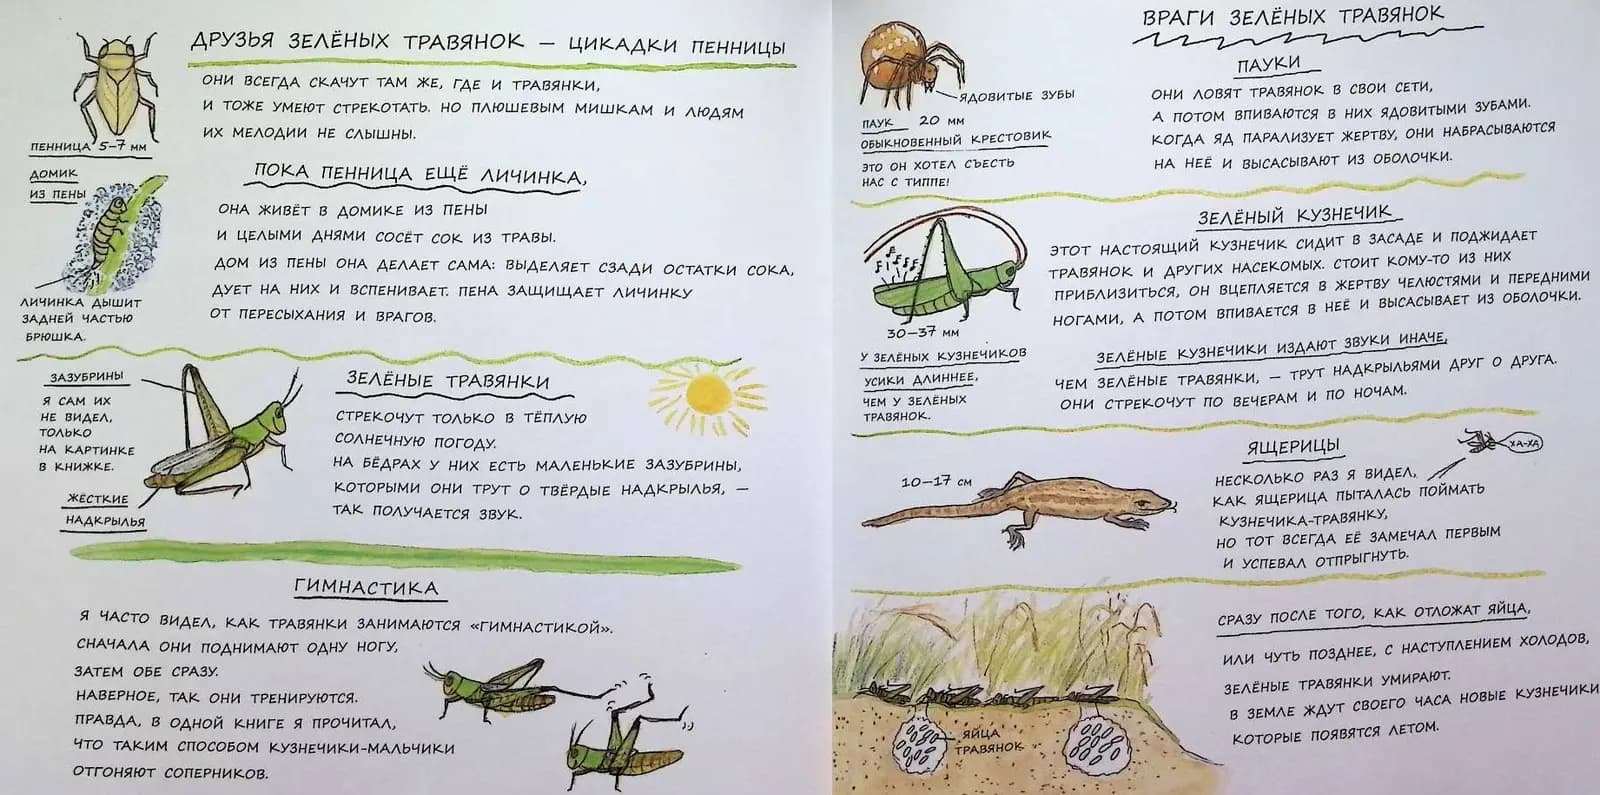 ДРУЗЬЯ ЗЕЛЁНЫХ ТРАВЯНОК – ЦИКАДКИ ПЕННИЦЫ
ОНИ ВСЕГДА СКАЧУТ ТАМ ЖЕ, ГДЕ И ТРАВЯНКИ,
И ТОЖЕ УМЕЮТ СТРЕКОТАТЬ. НО ПЛЮШЕВЫМ МИШКАМ И ЛЮДЯМ
ИХ МЕЛОДИИ НЕ СЛЫШНЫ.
ПЕННИЦА 5–7 ММ
ДОМИК
ИЗ ПЕНЫ
ПОКА ПЕННИЦА ЕЩЁ ЛИЧИНКА,
ОНА ЖИВЁТ В ДОМИКЕ ИЗ ПЕНЫ
И ЦЕЛЫМИ ДНЯМИ СОСЁТ СОК ИЗ ТРАВЫ.
ДОМ ИЗ ПЕНЫ ОНА ДЕЛАЕТ САМА: ВЫДЕЛЯЕТ СЗАДИ ОСТАТКИ СОКА,
ДУЕТ НА НИХ И ВСПЕНИВАЕТ. ПЕНА ЗАЩИЩАЕТ ЛИЧИНКУ
ОТ ПЕРЕСЫХАНИЯ И ВРАГОВ.
ЛИЧИНКА ДЫШИТ
ЗАДНЕЙ ЧАСТЬЮ
БРЮШКА.
ЗАЗУБРИНЫ
Я САМ ИХ
НЕ ВИДЕЛ,
ТОЛЬКО
НА КАРТИНКЕ
В КНИЖКЕ.
ЖЁСТКИЕ
НАДКРЫЛЬЯ
ЗЕЛЁНЫЕ ТРАВЯНКИ
СТРЕКОЧУТ ТОЛЬКО В ТЁПЛУЮ
СОЛНЕЧНУЮ ПОГОДУ.
НА БЁДРАХ У НИХ ЕСТЬ МАЛЕНЬКИЕ ЗАЗУБРИНЫ,
КОТОРЫМИ ОНИ ТРУТ О ТВЁРДЫЕ НАДКРЫЛЬЯ, –
ТАК ПОЛУЧАЕТСЯ ЗВУК.
ГИМНАСТИКА
Я ЧАСТО ВИДЕЛ, КАК ТРАВЯНКИ ЗАНИМАЮТСЯ «ГИМНАСТИКОЙ».
СНАЧАЛА ОНИ ПОДНИМАЮТ ОДНУ НОГУ,
ЗАТЕМ ОБЕ СРАЗУ.
НАВЕРНОЕ, ТАК ОНИ ТРЕНИРУЮТСЯ.
ПРАВДА, В ОДНОЙ КНИГЕ Я ПРОЧИТАЛ,
ЧТО ТАКИМ СПОСОБОМ КУЗНЕЧИКИ-МАЛЬЧИКИ
ОТГОНЯЮТ СОПЕРНИКОВ.
ВРАГИ ЗЕЛЁНЫХ ТРАВЯНОК
ПАУКИ
ОНИ ЛОВЯТ ТРАВЯНОК В СВОИ СЕТИ,
А ПОТОМ ВПИВАЮТСЯ В НИХ ЯДОВИТЫМИ ЗУБАМИ.
КОГДА ЯД ПАРАЛИЗУЕТ ЖЕРТВУ, ОНИ НАБРАСЫВАЮТСЯ
НА НЕЁ И ВЫСАСЫВАЮТ ИЗ ОБОЛОЧКИ.
ЯДОВИТЫЕ ЗУБЫ
ПАУК 20 ММ
ОБЫКНОВЕННЫЙ КРЕСТОВИК
ЭТО ОН ХОТЕЛ СЪЕСТЬ
НАС С ТИППЕ!
ЗЕЛЁНЫЙ КУЗНЕЧИК
ЭТОТ НАСТОЯЩИЙ КУЗНЕЧИК СИДИТ В ЗАСАДЕ И ПОДЖИДАЕТ
ТРАВЯНОК И ДРУГИХ НАСЕКОМЫХ. СТОИТ КОМУ-ТО ИЗ НИХ
ПРИБЛИЗИТЬСЯ, ОН ВЦЕПЛЯЕТСЯ В ЖЕРТВУ ЧЕЛЮСТЯМИ И ПЕРЕДНИМИ
НОГАМИ, А ПОТОМ ВПИВАЕТСЯ В НЕЁ И ВЫСАСЫВАЕТ ИЗ ОБОЛОЧКИ.
30–37 ММ
У ЗЕЛЁНЫХ КУЗНЕЧИКОВ
УСИКИ ДЛИННЕЕ,
ЧЕМ У ЗЕЛЁНЫХ
ТРАВЯНОК.
ЗЕЛЁНЫЕ КУЗНЕЧИКИ ИЗДАЮТ ЗВУКИ ИНАЧЕ,
ЧЕМ ЗЕЛЁНЫЕ ТРАВЯНКИ, – ТРУТ НАДКРЫЛЬЯМИ ДРУГ О ДРУГА.
ОНИ СТРЕКОЧУТ ПО ВЕЧЕРАМ И ПО НОЧАМ.
ЯЩЕРИЦЫ
ХА-ХА
10–17 СМ
НЕСКОЛЬКО РАЗ Я ВИДЕЛ,
КАК ЯЩЕРИЦА ПЫТАЛАСЬ ПОЙМАТЬ
КУЗНЕЧИКА-ТРАВЯНКУ,
НО ТОТ ВСЕГДА ЕЁ ЗАМЕЧАЛ ПЕРВЫМ
И УСПЕВАЛ ОТПРЫГНУТЬ.
СРАЗУ ПОСЛЕ ТОГО, КАК ОТЛОЖАТ ЯЙЦА,
ИЛИ ЧУТЬ ПОЗДНЕЕ, С НАСТУПЛЕНИЕМ ХОЛОДОВ,
ЗЕЛЁНЫЕ ТРАВЯНКИ УМИРАЮТ.
В ЗЕМЛЕ ЖДУТ СВОЕГО ЧАСА НОВЫЕ КУЗНЕЧИКИ
КОТОРЫЕ ПОЯВЯТСЯ ЛЕТОМ.
ЯЙЦА
ТРАВЯНОК